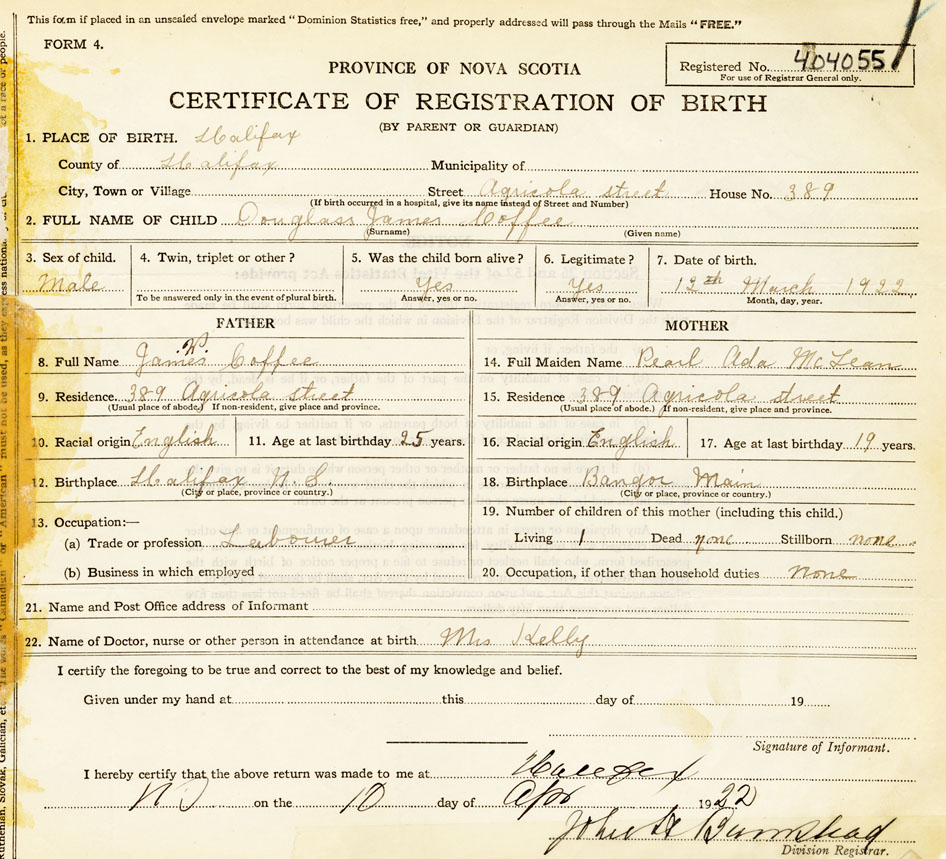 This form if placed in an unsealed envelope marked "Dominion Statistics free," and properly addressed will pass through the Mails "FREE."
FORM 4.
Registered No. 404055
For use of Registrar General only.
PROVINCE OF NOVA SCOTIA
CERTIFICATE OF REGISTRATION OF BIRTH
(BY PARENT OR GUARDIAN)
1. PLACE OF BIRTH. Halifax
County of Halifax Municipality of
City, Town or Village Street Agricola street House No. 389
(If birth occurred in a hospital, give its name instead of Street and Number)
2. FULL NAME OF CHILD Douglass James Coffee
(Surname) (Given name)
3. Sex of child. 4. Twin, triplet or other? 5. Was the child born alive? 6. Legitimate? 7. Date of birth.
Male Yes Yes 12th March 1922
To be answered only in the event of plural birth. Answer, yes or no. Answer, yes or no. Month, day, year.
FATHER MOTHER
8. Full Name James W Coffee 14. Full Maiden Name Pearl Ada McLean
9. Residence 389 Agricola street 15. Residence 389 Agricola street
(Usual place of abode.) If non-resident, give place and province. (Usual place of abode.) If non-resident, give place and province.
10. Racial origin English 11. Age at last birthday 25 years. 16. Racial origin English 17. Age at last birthday 19 years.
12. Birthplace Halifax N. S. 18. Birthplace Bangor Main
(City or place, province or country.) (City or place, province or country.)
13. Occupation:— 19. Number of children of this mother (including this child.)
(a) Trade or profession Labourer Living 1 Dead none Stillborn none
(b) Business in which employed 20. Occupation, if other than household duties none
21. Name and Post Office address of Informant
22. Name of Doctor, nurse or other person in attendance at birth Mrs Kelly
I certify the foregoing to be true and correct to the best of my knowledge and belief.
Given under my hand at this day of 19
Signature of Informant.
I hereby certify that the above return was made to me at Halifax
NS on the 10 day of Apr 1922
John H
Division Registrar.